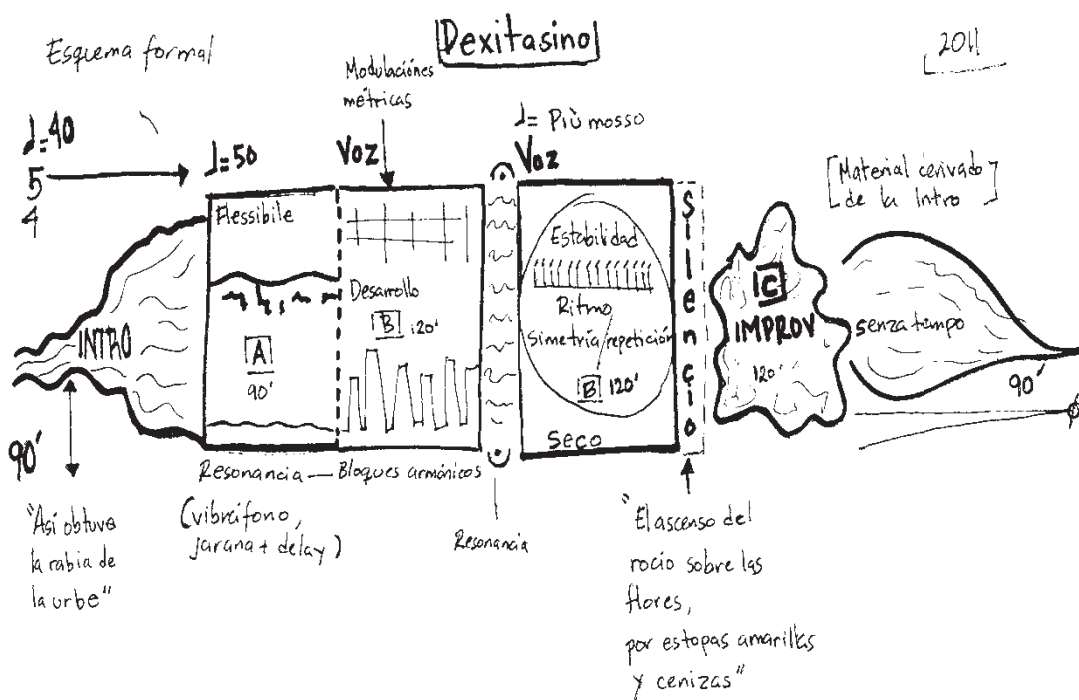 Esquema formal
Dexitasino
2011
Modulaciónes
métricas
♩=40
5
4
♩=50
Voz
♩= Più mosso
Voz
[Material derivado
de la Intro]
Flessibile
Desarrollo
B 120'
INTRO
A
90'
Estabilidad
Ritmo
Simetría/repetición
B 120'
Seco
Silencio
C
IMPROV
120'
senza tempo
90'
90'
Resonancia — Bloques armónicos
(vibráfono,
jarana + delay)
Resonancia
"Así obtuve
la rabia de
la urbe"
"El ascenso del
rocío sobre las
flores,
por estopas amarillas
y cenizas"